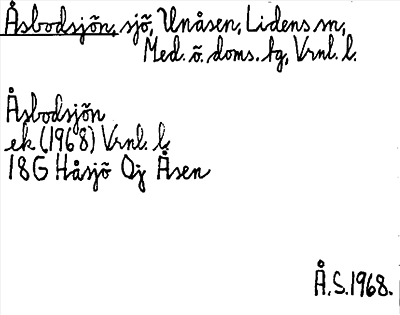 Åsbodsjön, sjö, Unåsen, Lidens sn,
Med. ö. doms. tg, Vrnl. l.
Åsbodsjön
ek (1968) Vrnl. l.
18G Håsjö 0j Åsen
Å.S. 1968.